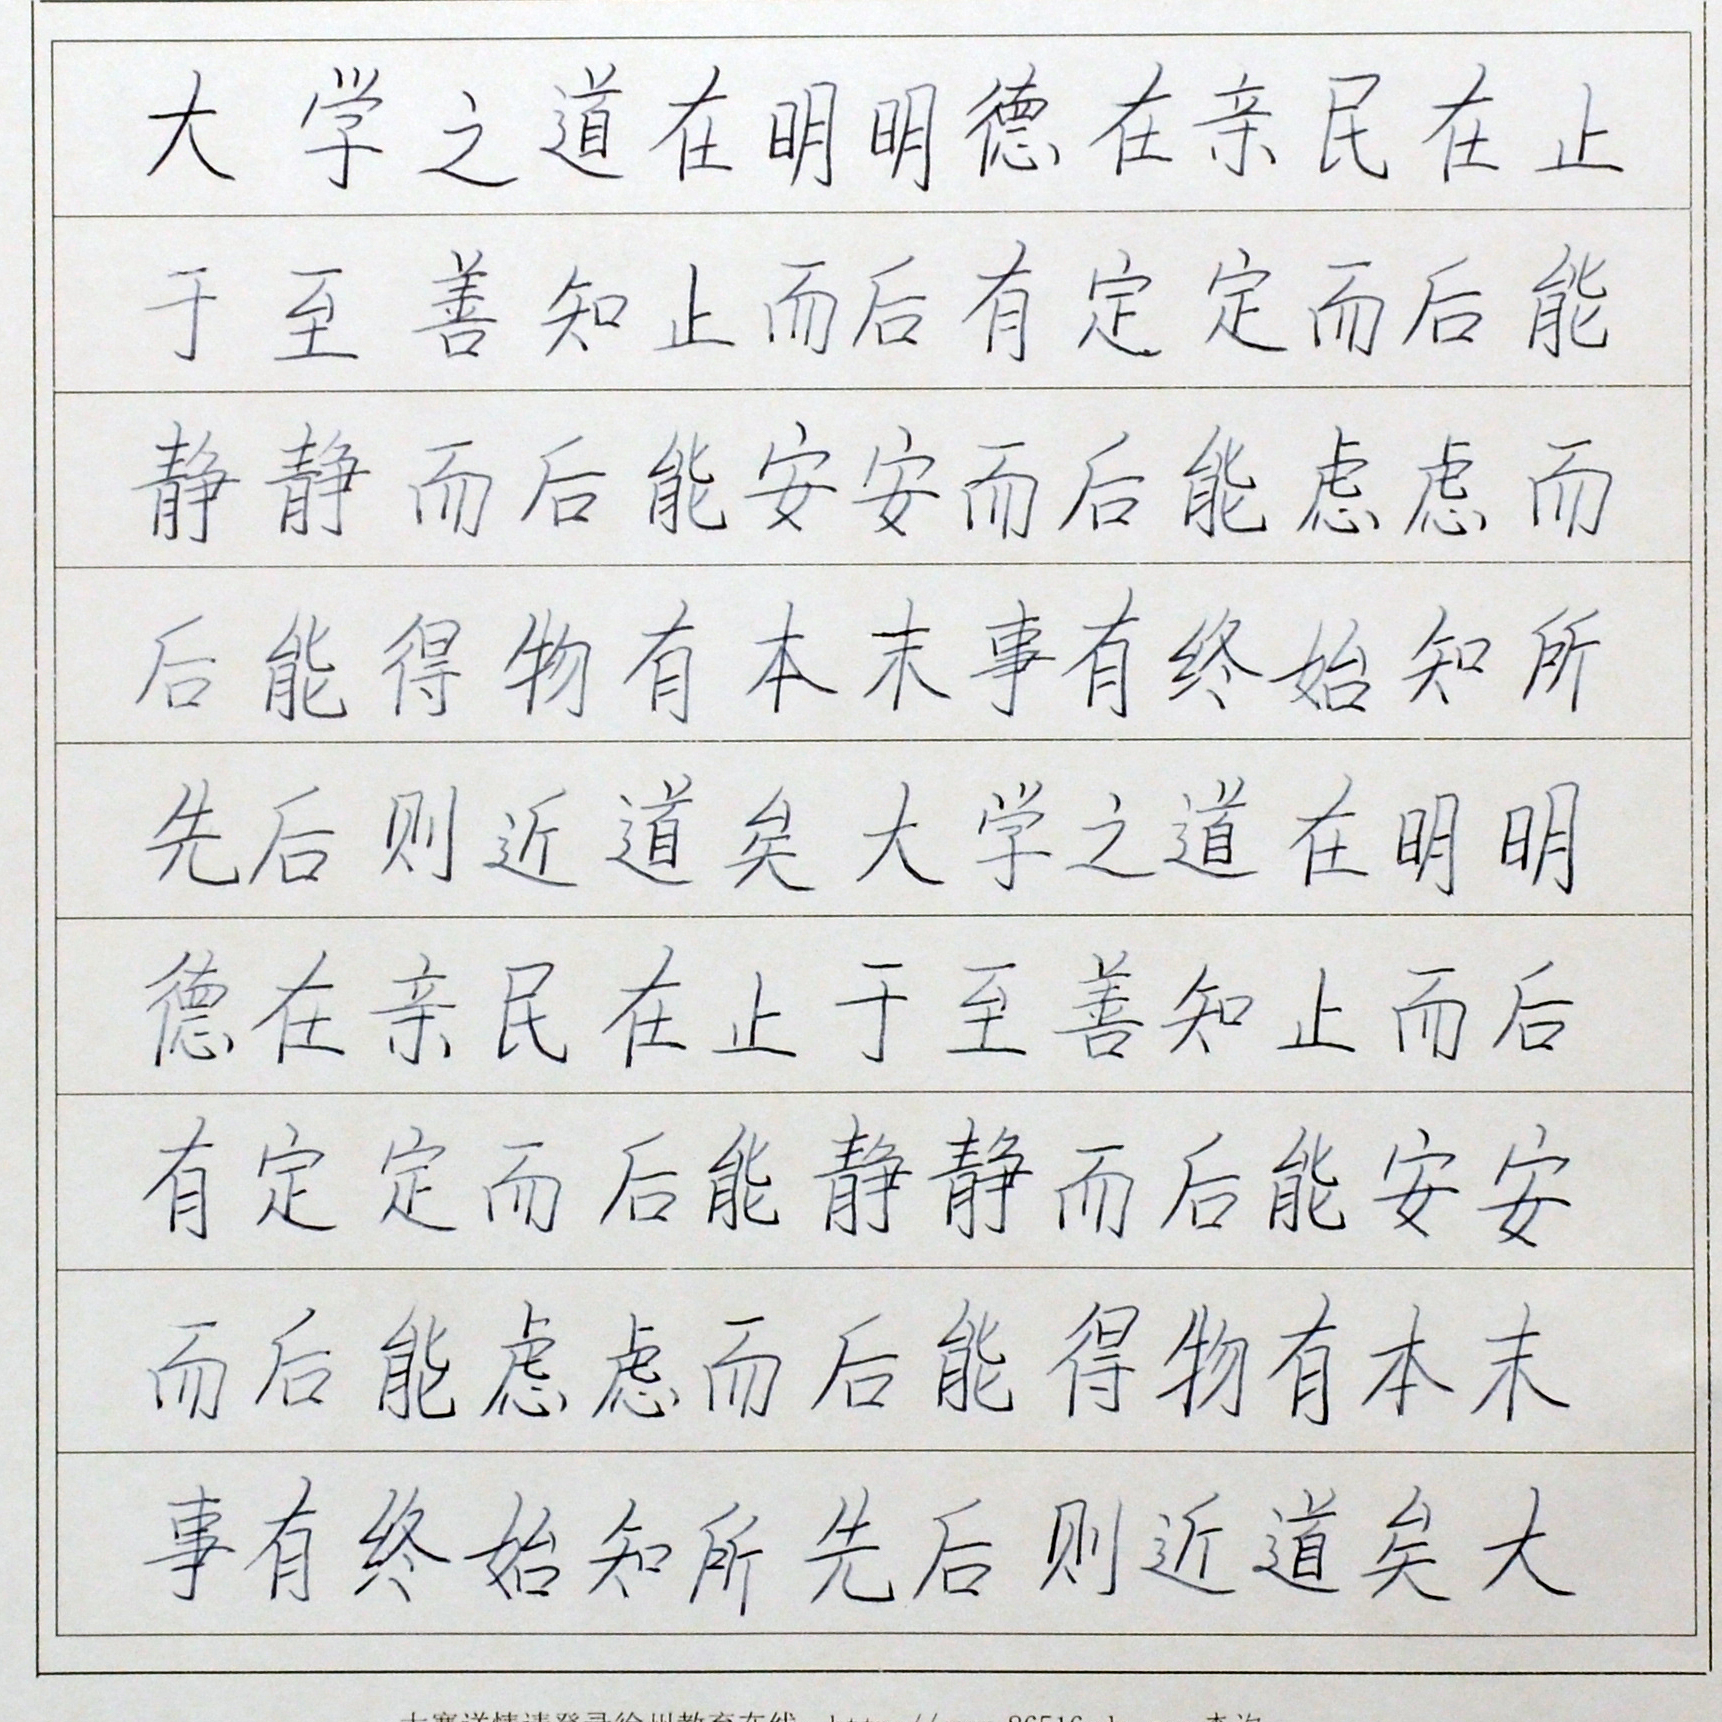 大学之道在明明德在亲民在止
于至善知止而后有定定而后能
静静而后能安安而后能虑虑而
后能得物有本末事有终始知所
先后则近道矣大学之道在明明
德在亲民在止于至善知止而后
有定定而后能静静而后能安安
而后能虑虑而后能得物有本末
事有终始知所先后则近道矣大